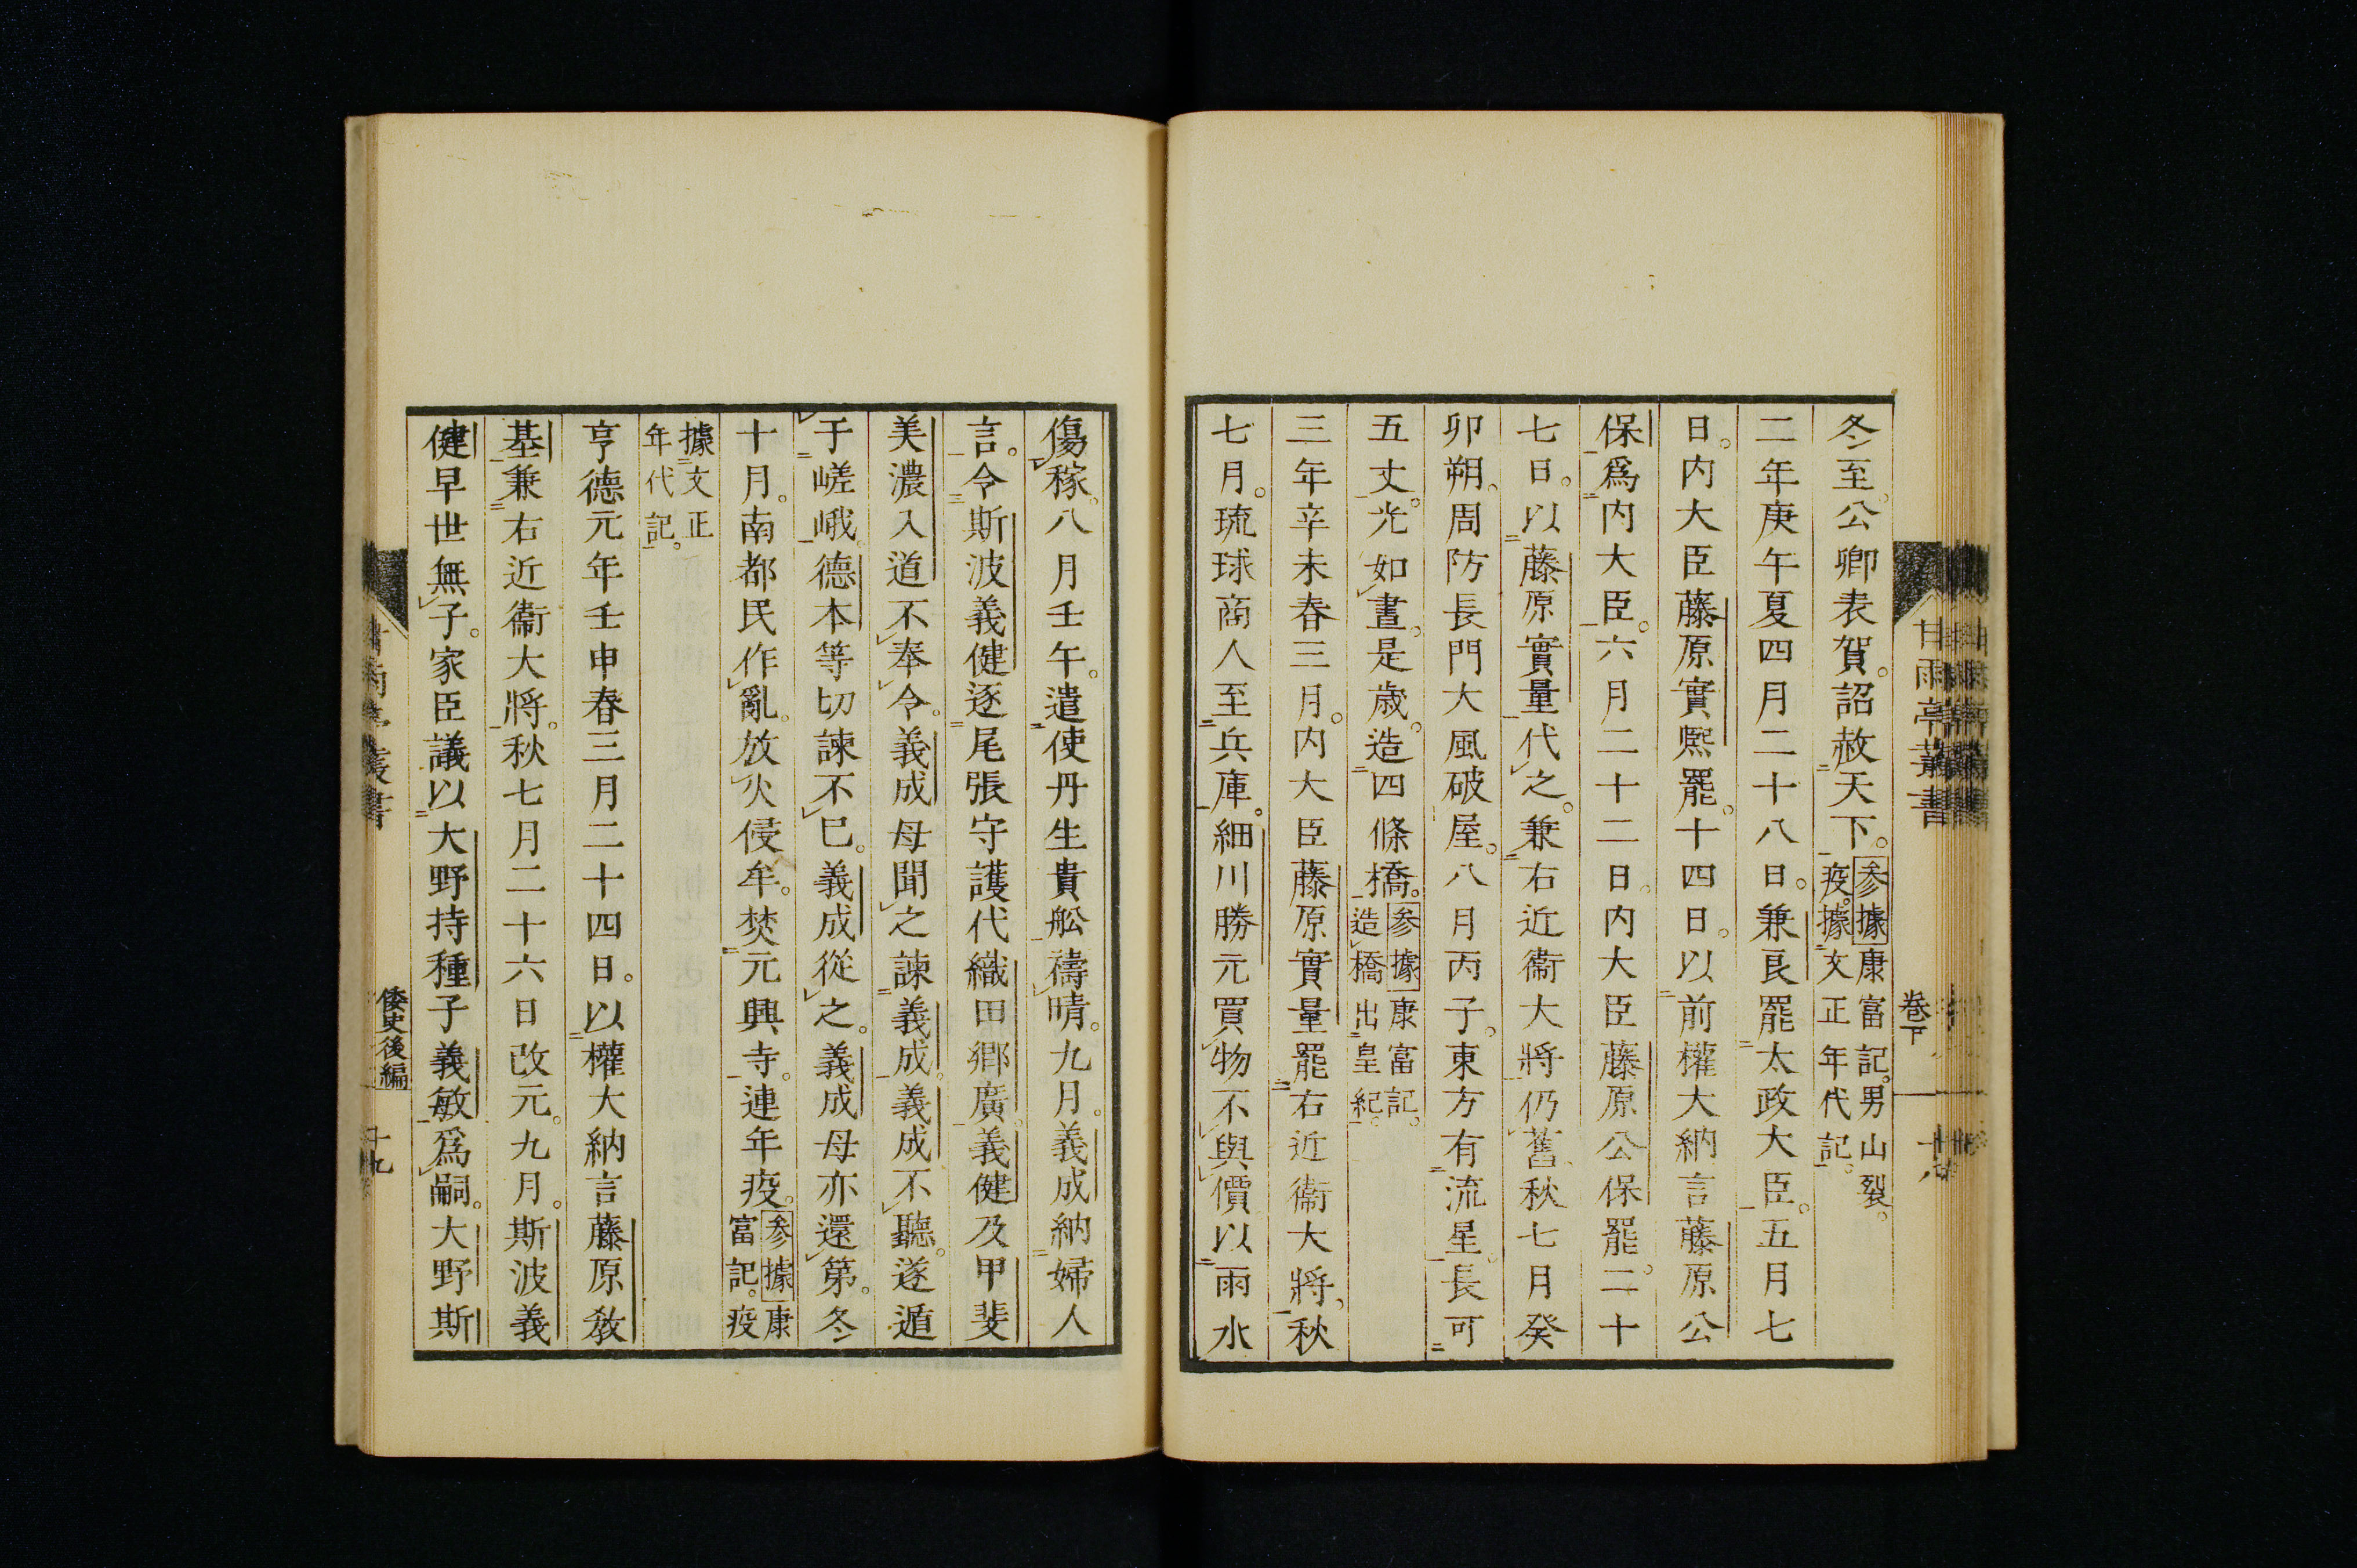 冬至。公卿表賀。詔赦天下。参據康富記。男山裂。疫。據文正年代記。
二年庚午夏四月二十八日。兼良罷太政大臣。五月七
日。內大臣藤原實熈罷。十四日。以前權大納言藤原公
保爲內大臣。六月二十二日。內大臣藤原公保罷。二十
七日。以藤原實量代之。兼右近衞大將仍舊。秋七月癸
卯朔。周防長門大風破屋。八月丙子。東方有流星。長可
五丈。光如晝。是歲。造四條橋。参據康富記。造橋出皇紀。
三年辛未春三月。內大臣藤原實量罷右近衞大將。秋
七月。琉球商人至兵庫。細川勝元買物不與價以雨水
甘雨亭叢書
卷下
十八
傷稼。八月壬午。遣使丹生貴舩禱晴。九月。義成納婦人
言。令斯波義健逐尾張守護代織田鄉廣。義健及甲斐
美濃入道不奉令。義成母聞之諫義成。義成不聽。遂遁
于嵯峨。德本等切諫不已。義成從之。義成母亦還第。冬
十月。南都民作亂。放火侵牟。焚元興寺。連年疫。参據康富記。疫
據文正年代記。
亨德元年壬申春三月二十四日。以權大納言藤原敎
基兼右近衞大將。秋七月二十六日改元。九月。斯波義
健早世無子。家臣議以大野持種子義敏爲嗣。大野斯
倭史後編
十九